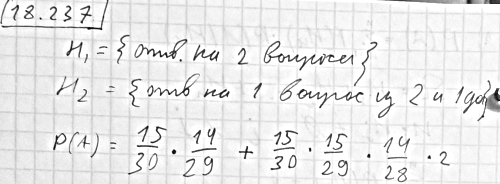 18.237
H₁ = {отв. на 2 вопроса}
H₂ = {отв на 1 вопрос из 2 и 1 доп}
P(A) = 15/30 · 14/29 + 15/30 · 15/29 · 14/28 · 2